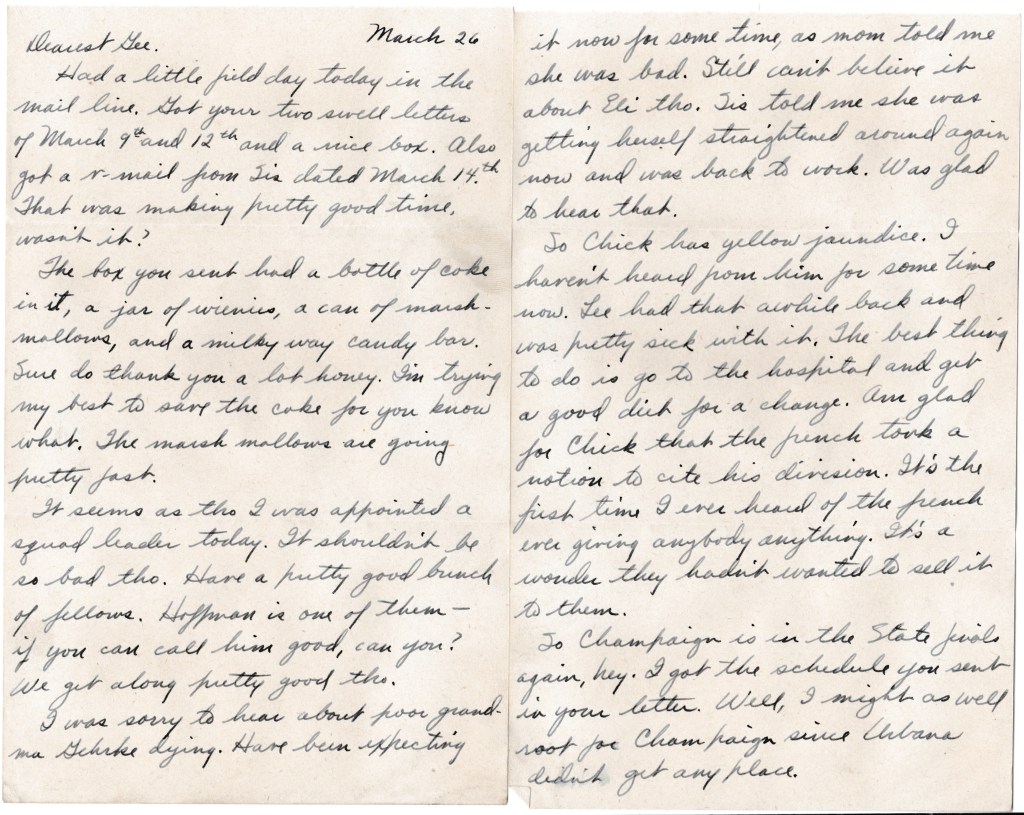 March 26
Dearest Gee.
Had a little field day today in the
mail line. Got your two swell letters
of March 9th and 12th and a nice box. Also
got a v-mail from Sis dated March 14th.
That was making pretty good time,
wasn't it?
The box you sent had a bottle of coke
in it, a jar of wienies, a can of marsh-
mallows, and a milky way candy bar.
Sure do thank you a lot honey. I'm trying
my best to save the coke for you know
what. The marsh mallows are going
pretty fast.
It seems as tho I was appointed a
squad leader today. It shouldn't be
so bad tho. Have a pretty good bunch
of fellows. Hoffman is one of them—
if you can call him good, can you?
We get along pretty good tho.
I was sorry to hear about poor grand-
ma Gehrke dying. Have been expecting
it now for some time, as mom told me
she was bad. Still can't believe it
about Eli tho. Sis told me she was
getting herself straightened around again
now and was back to work. Was glad
to hear that.
So Chick has yellow jaundice. I
haven't heard from him for some time
now. Lee had that awhile back and
was pretty sick with it. The best thing
to do is go to the hospital and get
a good diet for a change. Am glad
for Chick that the french took a
notion to cite his division. It's the
first time I ever heard of the french
ever giving anybody anything. It's a
wonder they hadn't wanted to sell it
to them.
So Champaign is in the State finals
again, hey. I got the schedule you sent
in your letter. Well, I might as well
root for Champaign since Urbana
didn't get any place.